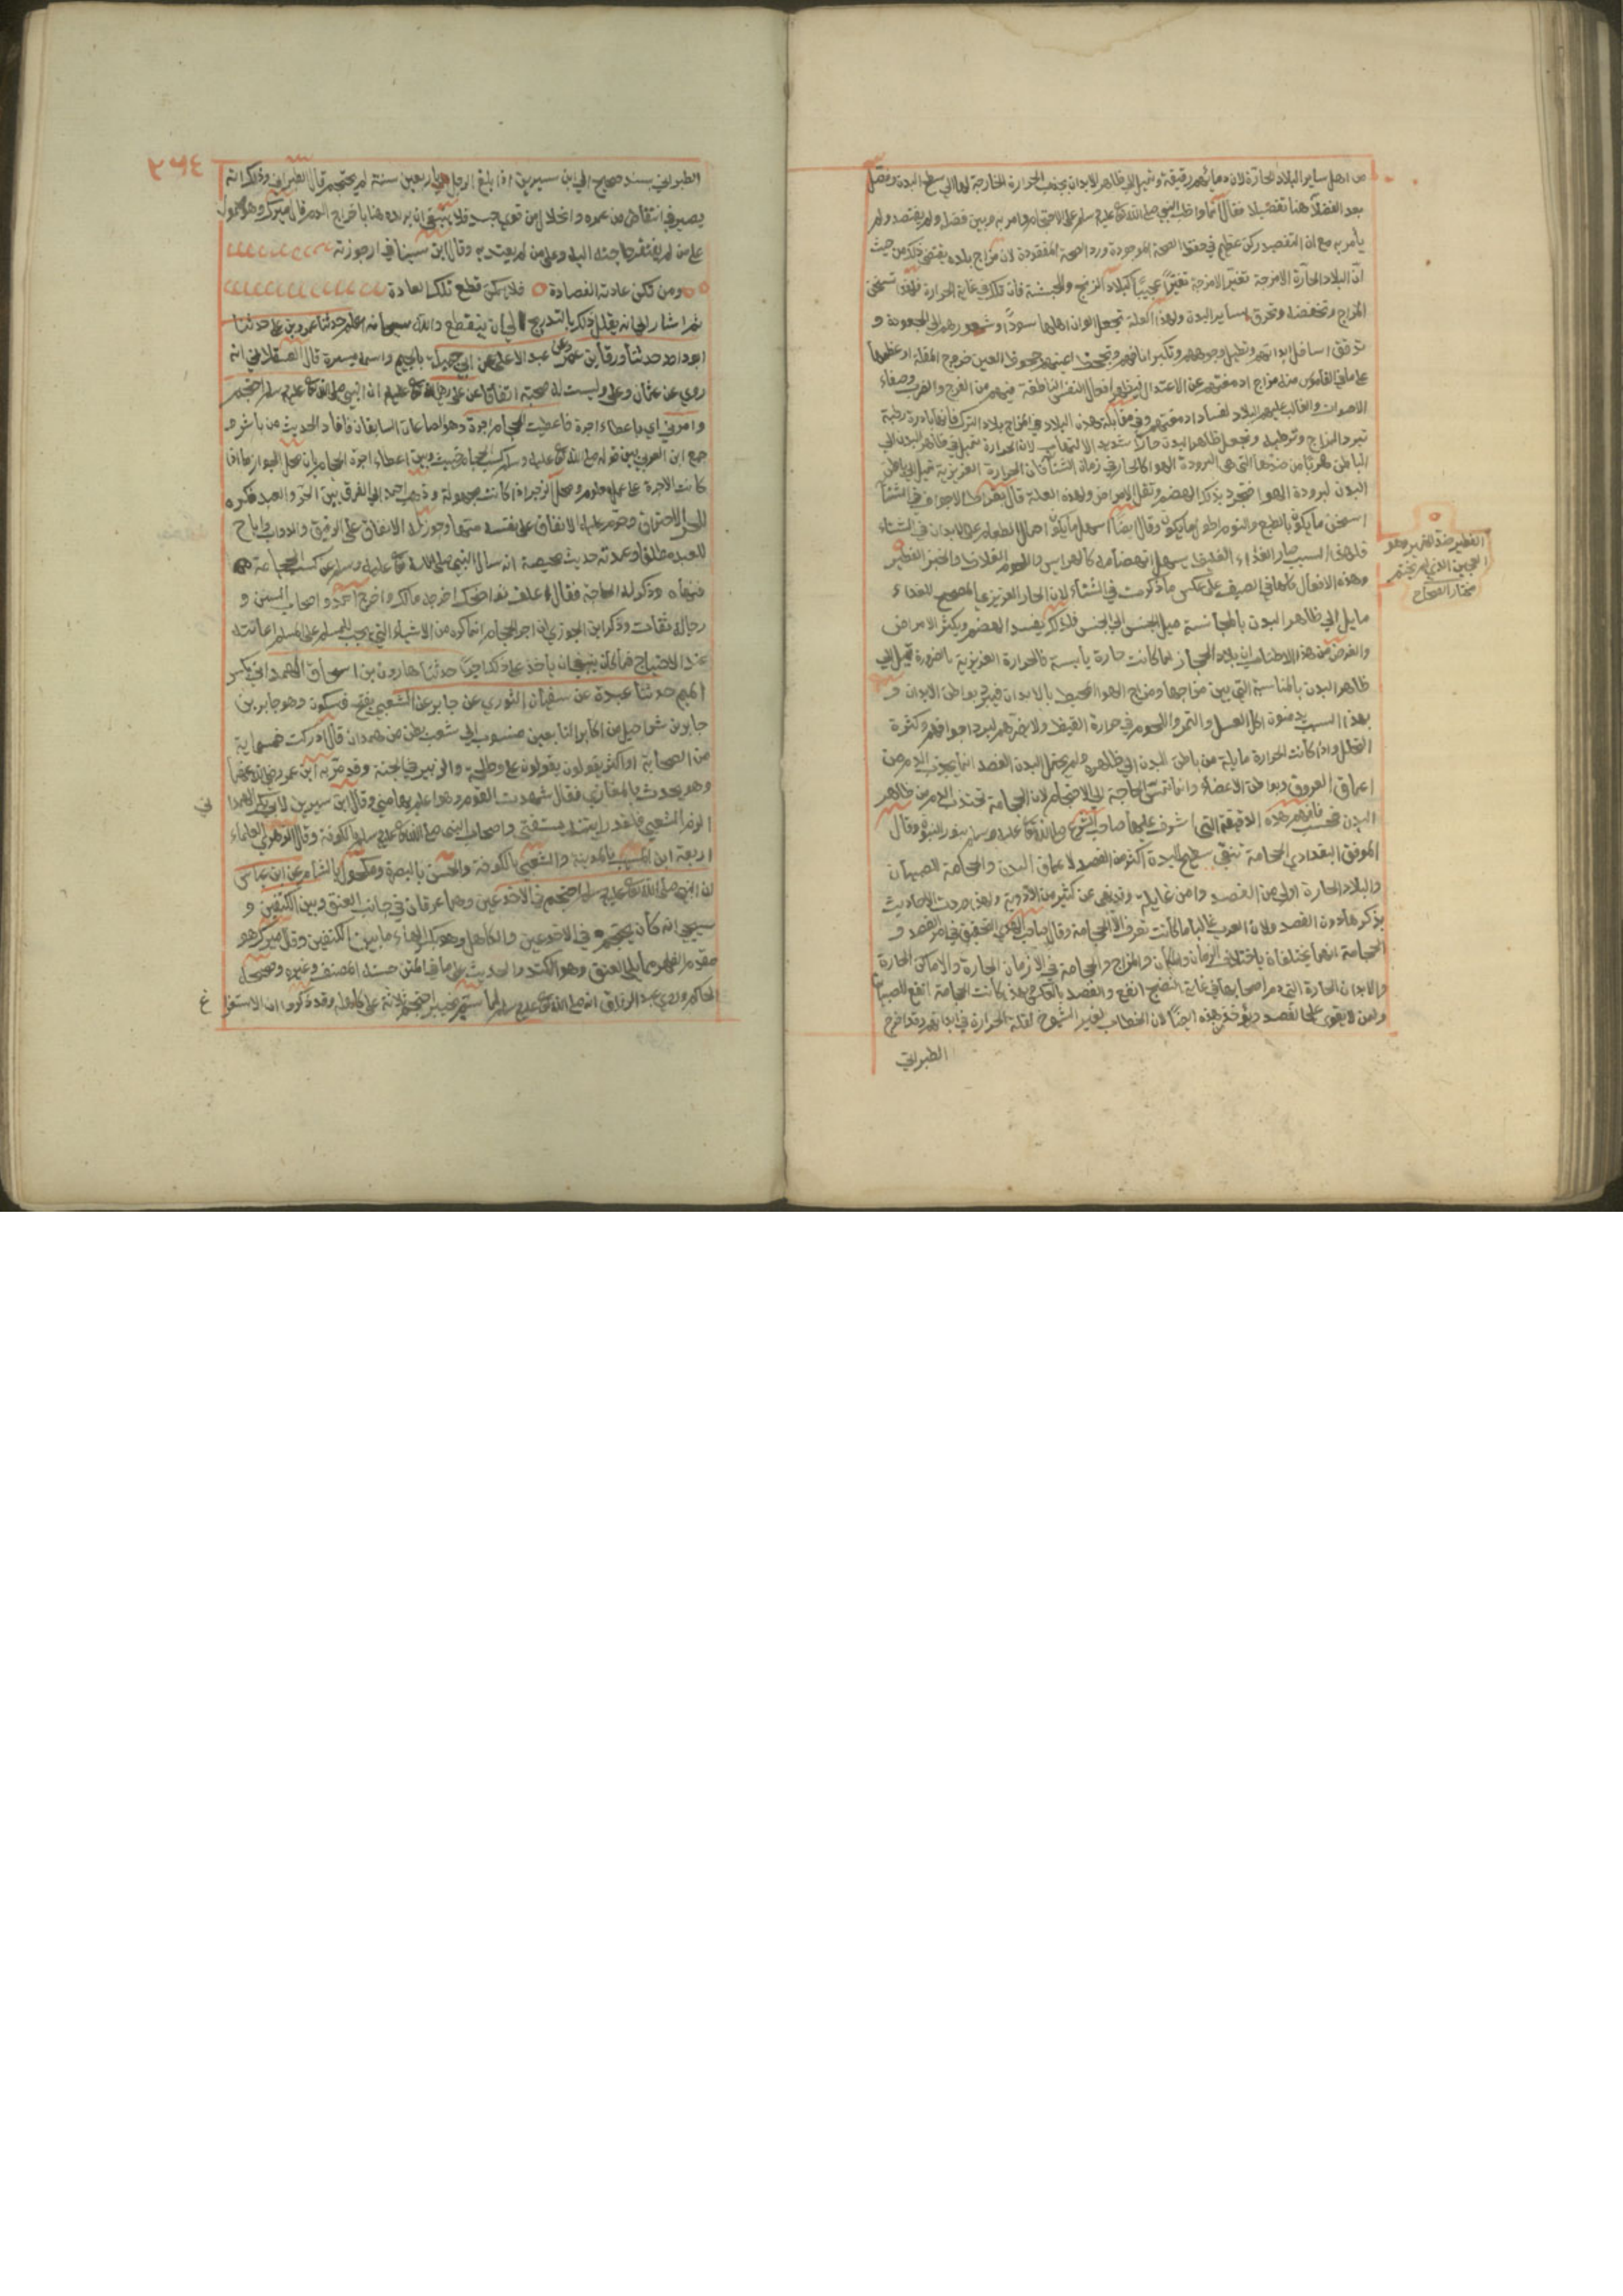 من اهل ساير البلاد الحارة لان دماءهم رقيقة وتميل الي ظاهر الابدان بجذب الحرارة الخارجة لها الي سطح البدن وفصل
بعد الفضلاء هنا تفصيلا فقال انما واظب النبي صلي الله تع عليه وسلم علي الاحتجام وامر به وبين فضله ولم يفتصد ولم
يأمر به مع ان التفصيد ركن عظيم في حفظ الصحة الموجودة ورد الصحة المفقودة لان مزاج بلده يقتضي ذلك من حيث
ان البلاد الحارة الامزجة تغير الامزجة تغيرا عجيبا كبلاد الزنج والحبشة فان تلك في غاية الحرارة فلهذا تسخن
المزاج وتجففه وتحرق ساير البدن ولهذه العلة تجعل الوان اهلها سودا وشعورهم الي الجعودة و
تدقق اسافل ابدانهم وتطيل وجوههم وتكبر انافهم وتجحظ اعينهم جحوظ العين خروج المقلة او عظمها
علي ما في القاموس مزاج ادمغتهم عن الاعتدال فيظهر افعال النفس الناطقة فيهم من الفرح والطرب وصفاء
الاصوات والغالب عليهم البلادة لفساد ادمغتهم وفي مقابلة هذه البلاد في المزاج بلاد الترك فانها باردة رطبة
تبرد المزاج وترطبه وتجعل ظاهر البدن حارا شديد الالتهاب لان الحرارة تميل في ظاهر البدن الي
الباطن هربا من ضدها التي هي البرودة الهوا كالحار في زمان الشتاء فان الحرارة الغريزية تميل الي باطن
البدن لبرودة الهوا فتجود بذلك الهضم وتقل الامراض ولهذه العلة قال بقراط الاجواف في الشتاء
اسخن ما يكون بالطبع والنوم اطول ما يكون وقال ايضا اسهل ما يكون احتمال الطعام علي الابدان في الشتاء
فلهذا السبب صار الغذاء الغليظ يسهل انهضامه كالهرايس واللحوم الغلاظ والخبز الفطير
وهذه الافعال كلها في الصيف علي عكس ما ذكرت في الشتاء لان الحار الغريزي المصحح للغذاء
مايل الي ظاهر البدن بالمجانسة ميل الجنس الي الجنس فلذلك يفسد الهضم ويكثر الامراض
والغرض من هذا الاطناب ان بلاد الحجاز لما كانت حارة يابسة فالحرارة الغريزية بالضرورة تميل الي
ظاهر البدن بالمناسبة التي بين مزاجها ومزاج الهوا المحيط بالابدان فيبرد بواطن الابدان و
بهذا السبب يدمنون اكل العسل والتمر واللحوم في حرارة القيظ ولا يضرهم لبرد اجوافهم وكثرة
التحلل واذا كانت الحرارة مايلة من باطن البدن الي ظاهره ولم يحتمل البدن الفصد انما يجذب الدم من
اعماق العروق وبواطن الاعضاء وانما تمس الحاجة الي الاحتجام لان الحجامة تجذب الدم من ظاهر
البدن فحسب فافهم هذه الدقيقة التي اشرف عليها صاحب الشرع صلي الله تع عليه وسلم بنور النبوة وقال
الموفق البغدادي الحجامة تنقي سطح البدن اكثر من الفصد لاعماق البدن والحجامة للصبيان
والبلاد الحارة اولي من الفصد وامن غايلة وقد يغني عن كثير من الادوية ولهذا وردت الاحاديث
بذكرها دون الفصد ولان العرب غالبا ما كانت تعرف الا الحجامة وقال صاحب الهدي التحقيق في امر الفصد و
الحجامة انهما يختلفان باختلاف الزمان والمكان والمزاج والحجامة في الازمان الحارة والاماكن الحارة
والابدان الحارة التي دم اصحابها في غاية النضج انفع والفصد بالعكس ولهذا كانت الحجامة انفع للصبيان
ولمن لا يقوي علي الفصد ويؤخذ من هذه ايضا ان الخطاب لغير الشيوخ لقلة الحرارة في ابدانهم وقد اخرج
الطبراني
الفطير ضد الخمير وهو
العجين الذي لم يختمر
مختار الصحاح
٢٦٤
الطبراني بسند صحيح الي ابن سيرين اذا بلغ الرجل اربعين سنة لم يحتجم قال الطبراني وذلك انه
يصير في انتقاص من عمره وانحلال من قوي جسده فلا ينبغي ان يزيده هنا باخراج الدم قال ميرك وهو محمول
علي من لم يفتقر حاجته اليه وعلي من لم يعتد به وقال ابن سينا في ارجوزته
ومن تكن عادته الفصادة فلا يكن قطع تلك العادة
ثم اشار الي انه يقلل ذلك بالتدريج الي ان ينقطع والله سبحانه اعلم حدثنا عمرو بن علي حدثنا
ابو داود حدثنا ورقا بن عمر عن عبد الاعلي عن ابي جميلة بالجيم واسمه ميسرة قال العسقلاني انه
روي عن عثمان وعلي وليست له صحبة اتفاقا عن علي رضي الله تع عليه ان النبي صلي الله تع عليه وسلم احتجم
وامرني اي باعطاء اجرة فاعطيت الحجام اجرة وهو الصاعان السابقان فافاد الحديث من باشره
جمع ابن العربي بين قوله صلي الله تع عليه وسلم كسب الحجام خبيث وبين اعطاء اجرة الحجام بان محل الجواز ما اذا
كانت الاجرة علي عمل معلوم ومحل الزجر اذا كانت مجهولة وذهب احمد الي الفرق بين الحر والعبد فكره
للحر الاحتراف وحرم عليه الانفاق علي نفسه منها وجوز له الانفاق علي الرقيق والدواب واباح
للعبد مطلقا وعمدته حديث محيصة انه سال النبي صلي الله تع عليه وسلم عن كسب الحجامة
فنهاه وذكر له الحاجة فقال اعلف نواضحك اخرجه مالك واخرج احمد واصحاب السنن و
رجاله ثقات وذكر ابن الجوزي ان اجر الحجام انما كره من الاشياء التي يجب للمسلم علي المسلم اعانة له
عند الاحتياج فما كان ينبغي ان ياخذ علي ذلك اجرا حدثنا هارون بن اسحاق الهمداني بكسر
الميم حدثنا عبدة عن سفيان الثوري عن جابر عن الشعبي بفتح فسكون وهو جابر بن
جابر بن شراحيل من اكابر التابعين منسوب الي شعب بطن من همدان قال ادركت خمسماية
من الصحابة او اكثر يقولون علي وطلحة والزبير في الجنة وقد مر به ابن عمر رضي الله عنهما
وهو يحدث بالمغازي فقال شهدت القوم وهو اعلم بها مني وقال ابن سيرين لابي بكر الهذلي
الزم الشعبي فلقد رايته يستفتي واصحاب النبي صلي الله تع عليه وسلم بالكوفة وقال الزهري العلماء
اربعة ابن المسيب بالمدينة والشعبي بالكوفة والحسن بالبصرة ومكحول بالشام عن ابن عباس
ان النبي صلي الله تع عليه وسلم احتجم في الاخدعين وهما عرقان في جانب العنق وبين الكتفين و
سيجي انه كان يحتجم في الاخدعين والكاهل وهو بكسر الهاء ما بين الكتفين وقال ميرك هو
مقدم الظهر مما يلي العنق وهو الكتد والحديث علي ما في المتن حسنه المصنف وغيره وصححه
الحاكم وروي عبد الرزاق انه صلي الله تع عليه وسلم لما سم بخيبر احتجم ثلاثة علي كاهله وقد ذكروا ان الاستفرا
غ